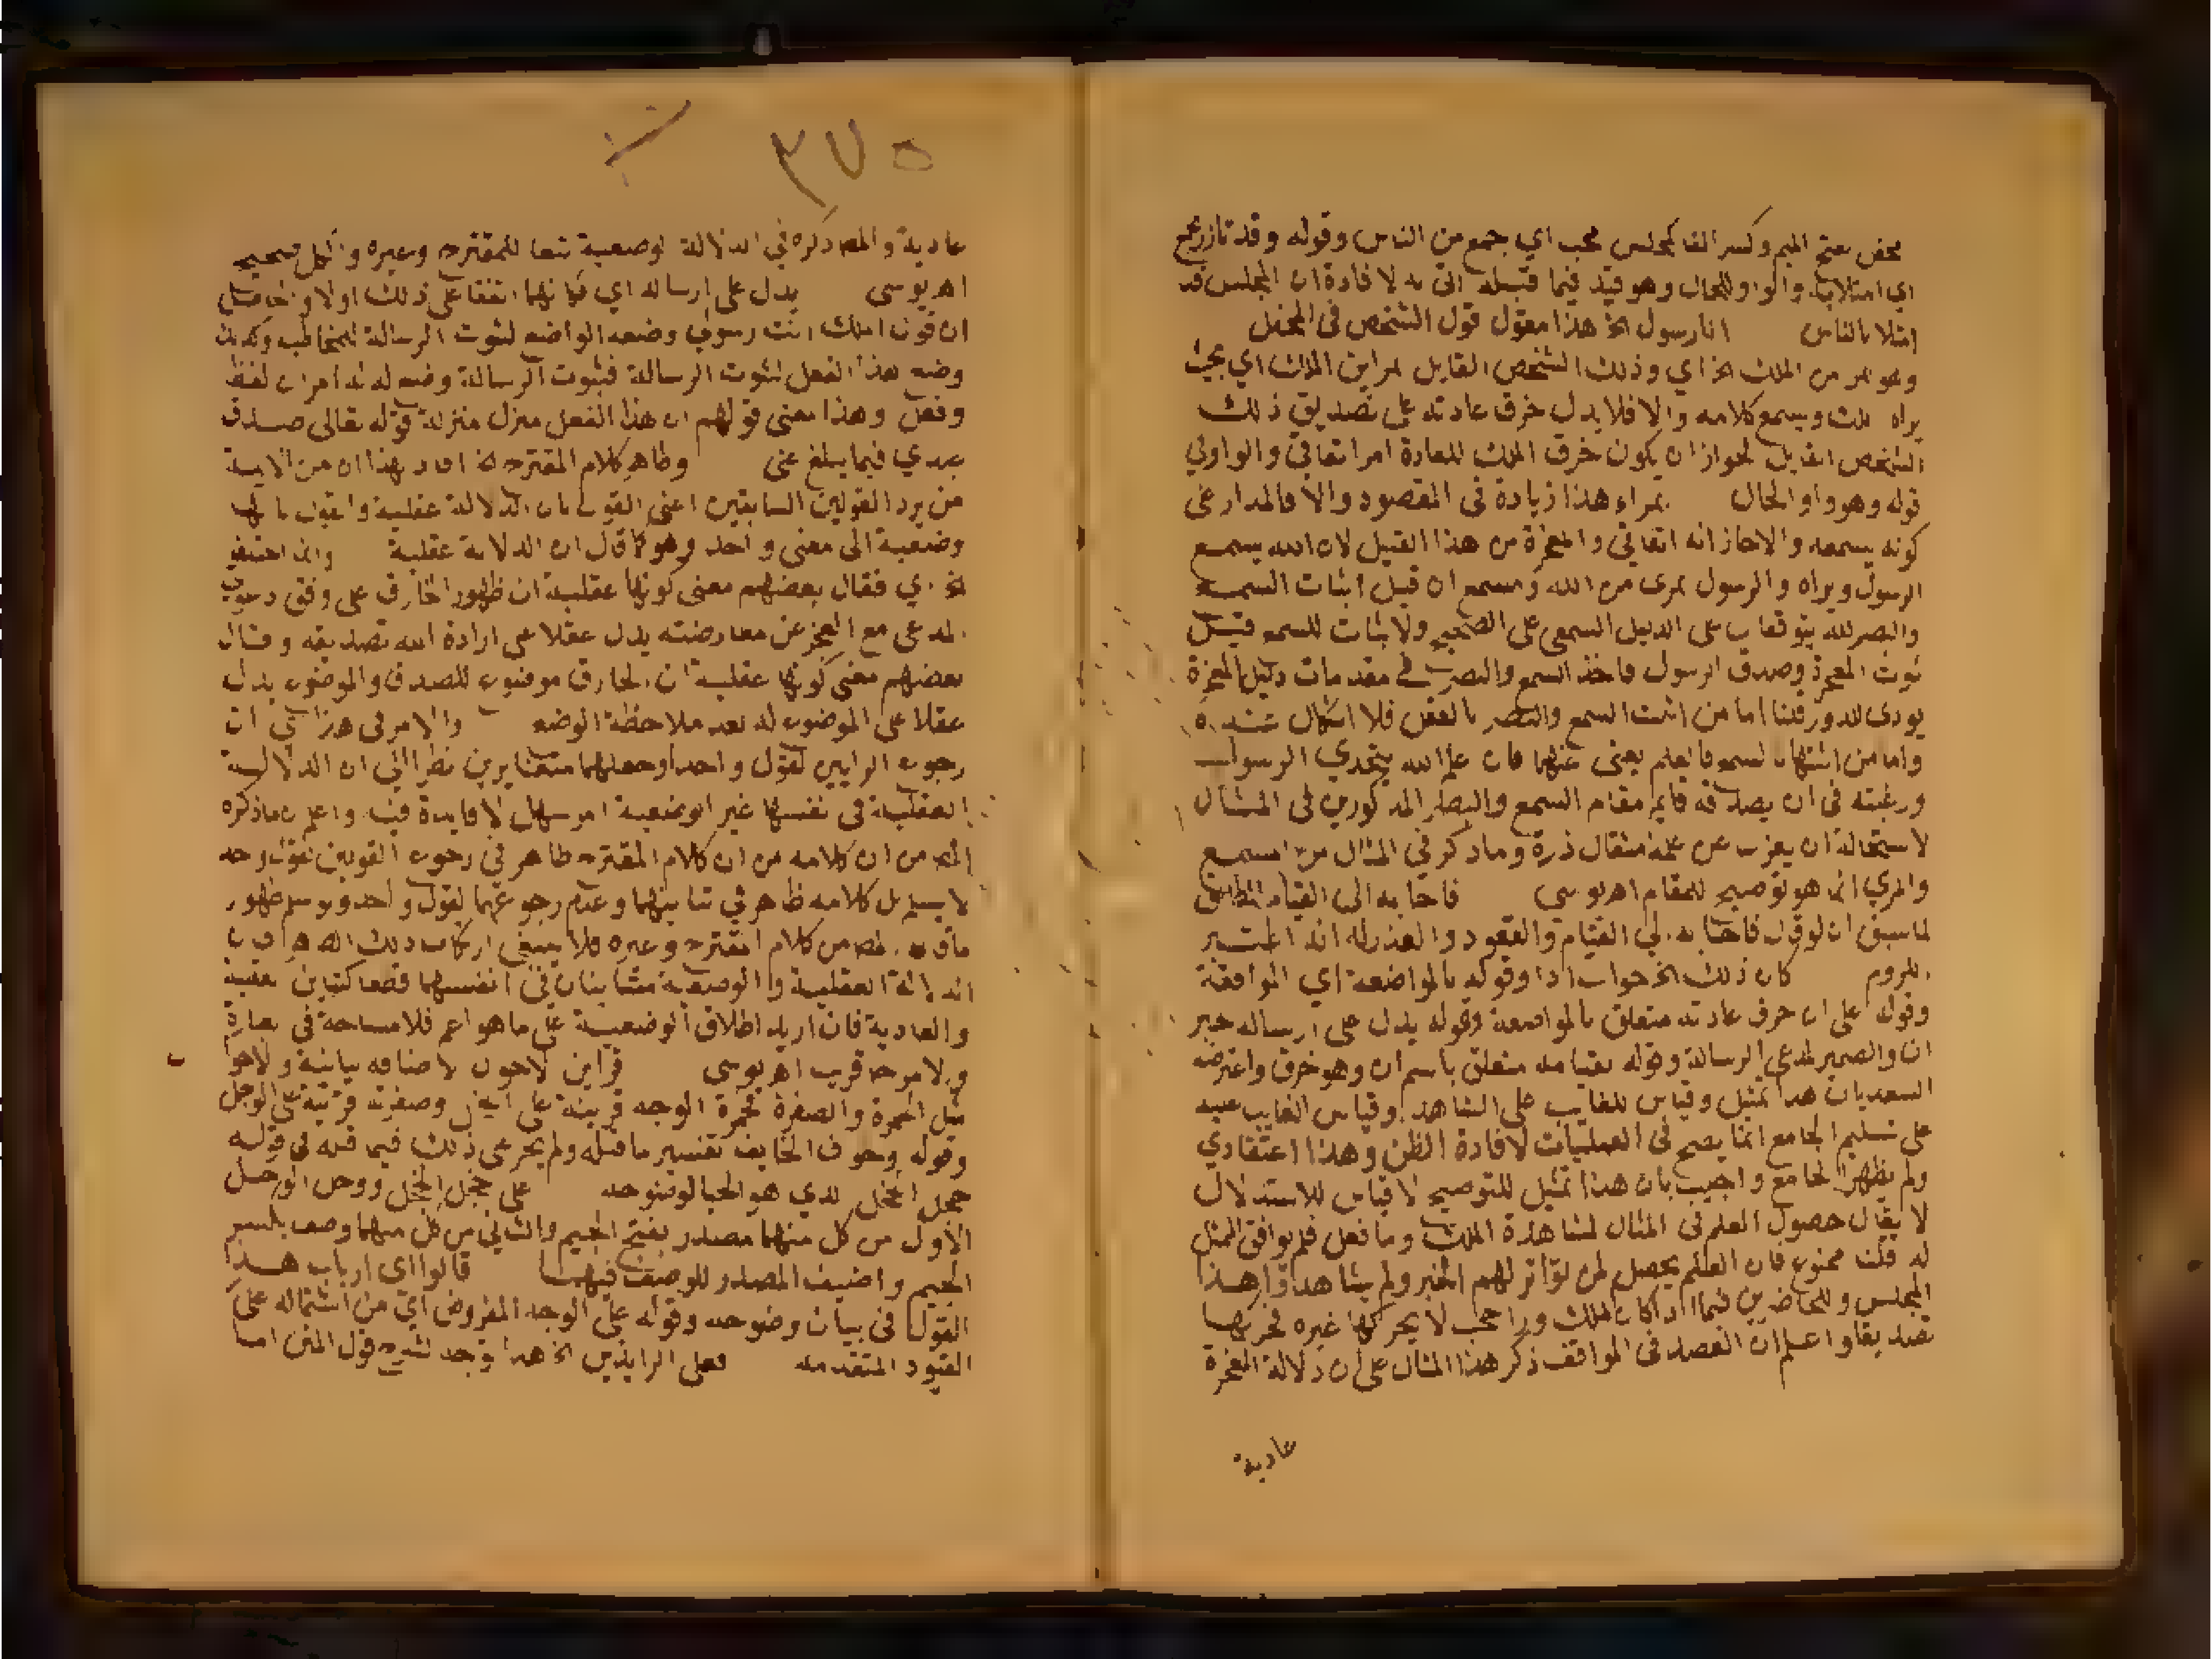 محفل بفتح الميم وكسر الفا كمجلس محب اي جمع من الناس وقوله وقد تازر
اي امتلا به والواو للحال وهو قيد فيما قبله اتى به لافادة ان المجلس قد
امتلا بالناس انا رسول الخ هذا مقول قول الشخص في المحفل
وهو بمر من الملك الخ اي وذلك الشخص القايل بمراي من الملك اي بحيث
يراه الملك ويسمع كلامه والا فلا يدل خرق عادته على تصديق ذلك
الشخص القايل لجواز ان يكون خرق الملك للعادة امرا اتفاقي والواو في
قوله وهو واو الحال بمراء هذا زيادة في المقصود والا فالمدار على
كونه يسمعه والا جاز انه اتفاقي والمعجزة من هذا القبيل لان الله يسمع
الرسول ويراه والرسول بمرى من الله ومسمع ان قيل اثبات السمع
والبصر لله يتوقفان على الدليل السمعي على الصحيح ولا اثبات للسمع قبل
ثبوت المعجزة وصدق الرسول فاخذ السمع والبصر في مقدمات دليل المعجزة
يودي للدور قلنا اما من اثبت السمع والبصر بالعقل فلا اشكال عنده
واما من اثبتها بالسمع فالعلم يغني عنهما فان علم الله بتحدي الرسول
ورغبته في ان يصدقه قايم مقام السمع والبصر المذكورين في المثال
لاستحالة ان يعزب عن علمه مثقال ذرة وما ذكر في المثال من السمع
والمري انما هو توضيح للمقام اهـ يوسي فاجابه الى القيام المطابق
لما سبق ان لو قال فاجابه الى القيام والقعود والعذر له انه اعتبر
الملزوم كان ذلك الخ جواب اذا وقوله بالمواضعة اي الموافقة
وقوله على ان خرق عادته متعلق بالمواضعة وقوله يدل على ارساله خبر
ان والضمير لمدعي الرسالة وقوله بقيامه متعلق باسم ان وهو خرق واعترضه
السعد بان هذا تمثيل وقياس للغايب على الشاهد وقياس الغايب عليه
على تسليم الجامع انما يصح في العمليات لافادة الظن وهذا اعتقادي
ولم يظهر الجامع واجيب بان هذا تمثيل للتوضيح لا قياس للاستدلال
لا يقال حصول العلم في المثال لمشاهدة الملك وما فعل فلم يوافق الممثل
له قلنا ممنوع فان العلم يحصل لمن تواتر لهم الخبر ولم يشاهدوا هذا
المجلس وللحاضرين فيما اذا كان الملك ورا حجب لا يحركها غيره فحركها
تصديقا واعلم ان العضد في المواقف ذكر هذا المثال على ان دلالة المعجزة
عادية
٣٧٥
عادية والمصـ ذكره في الدلالة الوضعية تبعا للمقترح وغيره والكل صحيح
اهـ يوسي يدل على ارساله اي فكانهما اتفقا على ذلك اولا والحاصل
ان قول الملك انت رسولي وضعه الواضع لثبوت الرسالة للمخاطب وكذلك
وضع هذا الفعل لثبوت الرسالة فثبوت الرسالة وضع له امران لفظ
وفعل وهذا معنى قولهم ان هذا الفعل منزل منزلة قوله تعالى صدق
عبدي فيما يبلغ عني وظاهر كلام المقترح الخ افاد بهذا ان من الايمة
من يرد القولين السابقين اعني القول بان الدلالة عقلية والقول بانها
وضعية الى معنى واحد وهو كما قال ان الدلالة عقلية وانما اختلفوا
الخ اي فقال بعضهم معنى كونها عقلية ان ظهور الخارق على وفق دعوى
المدعي مع العجز عن معارضته يدل عقلا على ارادة الله تصديقه وقال
بعضهم معنى كونها عقلية ان الخارق موضوع للصدق والموضوع يدل
عقلا على الموضوع له بعد ملاحظة الوضع والامر في هذا اي ان
رجوع الرايين لقول واحد او جعلهما متغايرين نظرا الى ان الدلالة
العقلية في نفسها غير الوضعية امر سهل لا فايدة فيه واعلم ان ما ذكره
المصـ من ان كلامه من ان كلام المقترح ظاهر في رجوع القولين لقول واحد
لا يسلم بل كلامه ظاهر في تباينهما وعدم رجوعهما لقول واحد ولو سلم ظهور
ما قاله المصـ من كلام المقترح وغيره فلا ينبغي ارتكاب ذلك
الدلالة العقلية والوضعية متباينان في انفسهما قطعا
والعادية فان اريد اطلاق الوضعية على ما هو اعم فلا مشاحة في
ولامر حـ قريب اهـ يوسي قراين الاحوال الاضافة بيانية والاحوال
مثل الحمرة والصفرة فحمرة الوجه قرينة على الخجل وصفرته قرينة على الوجل
وقوله وخوف الخايف تفسير ما قبله ولم يجر على ذلك فيما قبله في قوله
خجل الخجل الذي هو الحيا لوضوحه على خجل الخجل ووجل الوجل
الاول من كل منهما مصدر بفتح الجيم والثاني من كل منهما وصف بكسر
الجيم واضيف المصدر للوصف فيهما قالوا اي ارباب هذا
القول في بيان وضوحه وقوله على الوجه المفروض اي من اشتماله على
القيود المتقدمة فعلى الرايين الخ هذا توجه لشرح قول المتن اما